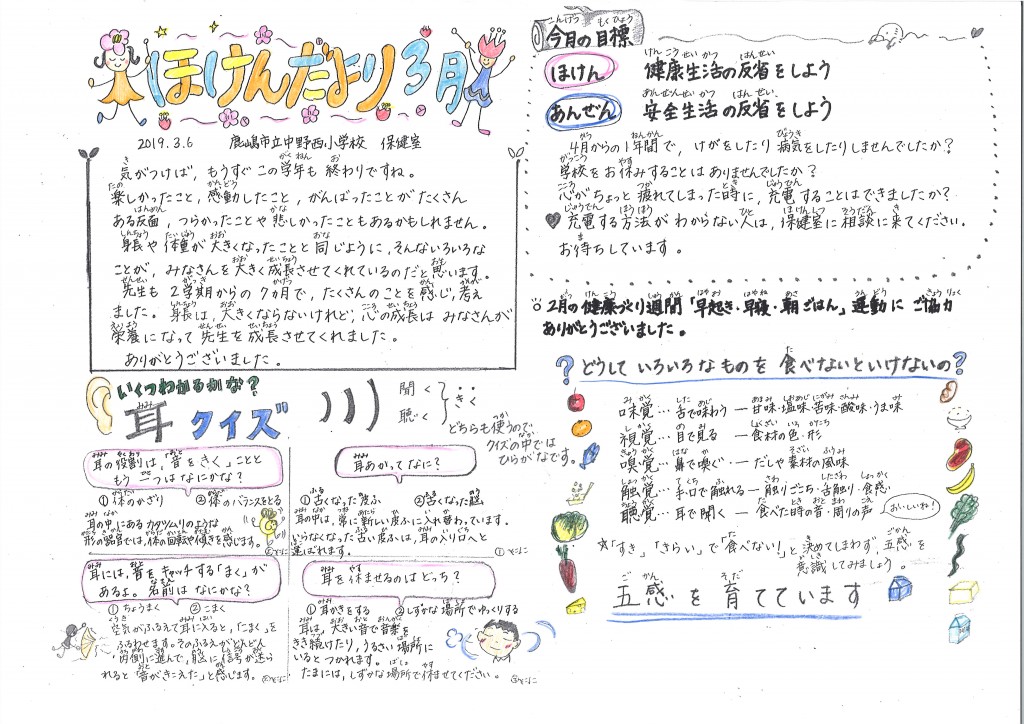 ほけんだより3月
2019.3.6 鹿嶋市立中野西小学校 保健室
気がつけば、もうすぐこの学年も終わりですね。
楽しかったこと、感動したこと、がんばったことがたくさん
ある反面、つらかったことや悲しかったこともあるかもしれません。
身長や体重が大きくなったことと同じように、そんないろいろな
ことが、みなさんを大きく成長させてくれているのだと思います。
先生も2学期からの7カ月で、たくさんのことを感じ、考え
ました。身長は、大きくならないけれど、心の成長はみなさんが
栄養になって先生を成長させてくれました。
ありがとうございました。
今月の目標
ほけん 健康生活の反省をしよう
あんぜん 安全生活の反省をしよう
4月からの1年間で、けがをしたり病気をしたりしませんでしたか?
学校をお休みすることはありませんでしたか?
心がちょっと疲れてしまった時に、充電することはできましたか?
♥充電する方法がわからない人は、保健室に相談に来てください。
お待ちしています。
○2月の健康づくり週間「早起き・早寝・朝ごはん」運動にご協力
ありがとうございました。
いくつわかるかな?
耳クイズ
聞く
聴く
きく
どちらも使うので、
クイズの中では
ひらがなです。
耳の役割は、「音をきく」ことと
もう一つはなにかな?
①体のかざり ②体のバランスをとる
耳の中にあるカタツムリのような
形の器官では、体の回転や傾きを感じます。
耳あかってなに?
①古くなった皮ふ ②古くなった
耳の中は、常に新しい皮ふに入れ替わっています。
いらなくなった古い皮ふは、耳の入り口へと
運ばれます。
耳には、音をキャッチする「まく」が
あるよ。名前はなにかな?
①ちょうまく ②こまく
空気がふるえて耳に入ると、「こまく」を
ふるわせます。そのふるえがどんどん
内側に進んで、脳に信号が送ら
れると「音がきこえた」と感じます。
耳を休ませるのはどっち?
①耳かきをする ②しずかな場所でゆっくりする
耳は、大きい音で音楽を
きき続けたり、うるさい場所に
いるとつかれます。
たまには、しずかな場所で休ませてください。
?どうしていろいろなものを食べないといけないの?
味覚…舌で味わう ― 甘味・塩味・苦味・酸味・うま味
視覚…目で見る ― 食材の色・形
嗅覚…鼻で嗅ぐ ― だしや素材の風味
触覚…手・口で触れる ― 触りごこち・舌触り・食感
聴覚…耳で聞く ― 食べた時の音・周りの声
おいしいね!
☆「すき」「きらい」で「食べない!」と決めてしまわず、五感を
意識してみましょう。
五感を育てています